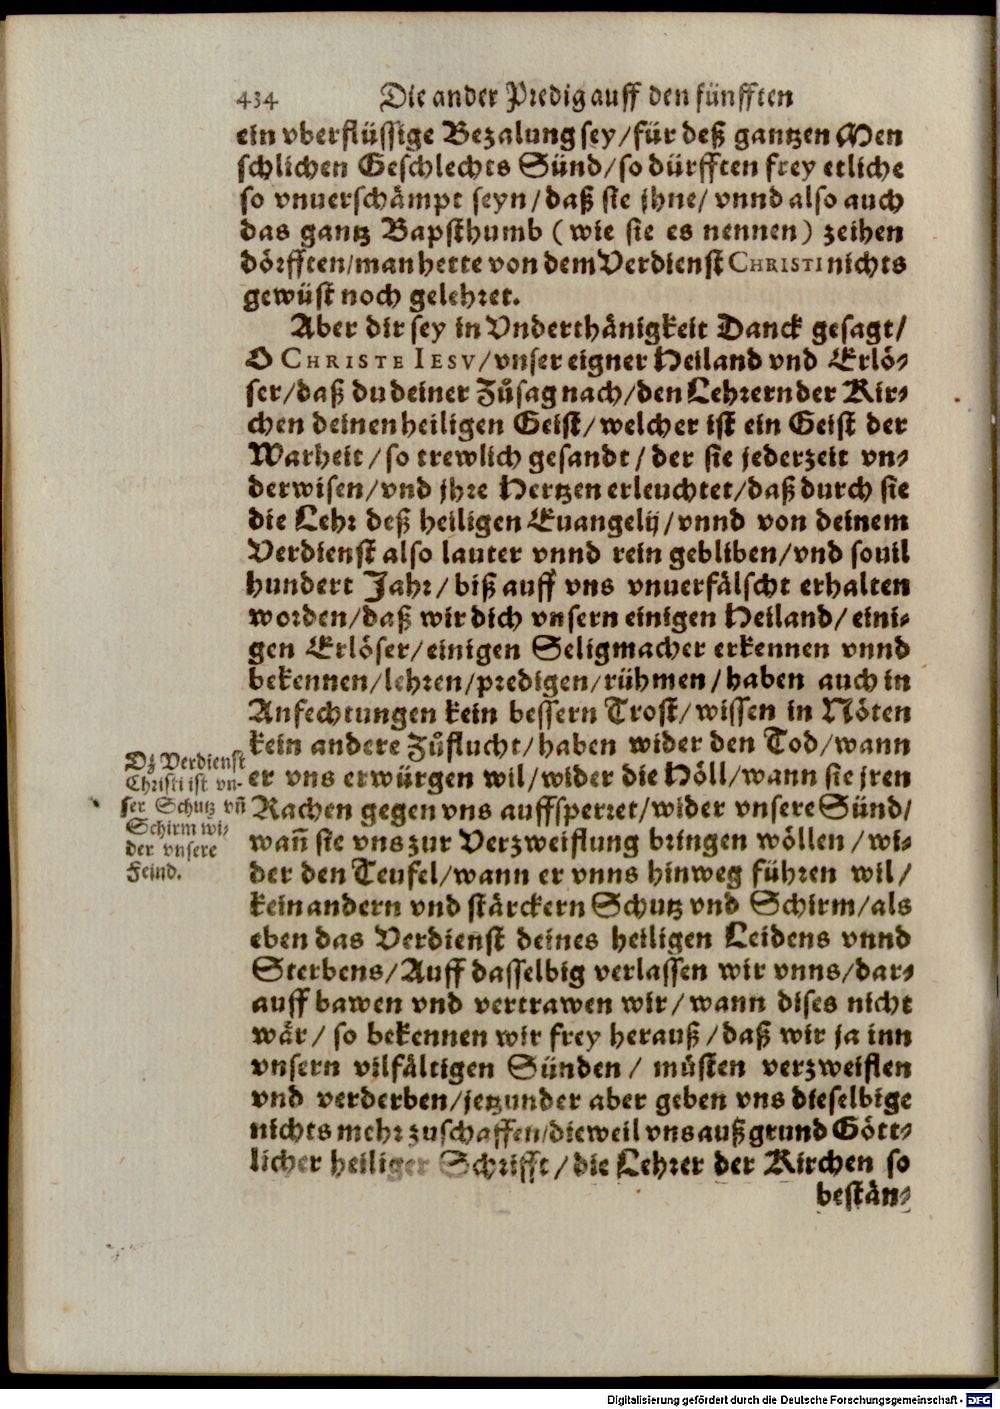 434 Die ander Predig auff den fünfften
ein vberflüssige Bezalung sey/für deß gantzen Men
schlichen Geschlechts Sünd/so dürfften frey etliche
so vnuerschämpt seyn/daß sie jhne/vnnd also auch
das gantz Bapsthumb (wie sie es nennen) zeihen
dörfften/man hette von dem Verdienst CHRISTI nichts
gewüst noch gelehret.
Aber dir sey in Vnderthänigkeit Danck gesagt/
O CHRISTE IESV/vnser eigner Heiland vnd Erlö-
ser/daß du deiner Zůsag nach/den Lehrern der Kir-
chen deinen heiligen Geist/welcher ist ein Geist der
Warheit/so trewlich gesandt/der sie jederzeit vn-
derwisen/vnd jhre Hertzen erleuchtet/daß durch sie
die Lehr deß heiligen Euangelij/vnnd von deinem
Verdienst also lauter vnnd rein gebliben/vnd souil
hundert Jahr/biß auff vns vnuerfälscht erhalten
worden/daß wir dich vnsern einigen Heiland/eini-
gen Erlöser/einigen Seligmacher erkennen vnnd
bekennen/lehren/predigen/rühmen/haben auch in
Anfechtungen kein bessern Trost/wissen in Nöten
kein andere Zůflucht/haben wider den Tod/wann
er vns erwürgen wil/wider die Höll/wann sie jren
Rachen gegen vns auffsperret/wider vnsere Sünd/
wañ sie vns zur Verzweiflung bringen wöllen/wi-
der den Teufel/wann er vnns hinweg führen wil/
kein andern vnd stärckern Schutz vnd Schirm/als
eben das Verdienst deines heiligen Leidens vnnd
Sterbens/Auff dasselbig verlassen wir vnns/dar-
auff bawen vnd vertrawen wir/wann dises nicht
wär/so bekennen wir frey herauß/daß wir ja inn
vnsern vilfältigen Sünden/müsten verzweiflen
vnd verderben/jetzunder aber geben vns dieselbige
nichts mehr zuschaffen/dieweil vns auß grund Gött-
licher heiliger Schrifft/die Lehrer der Kirchen so
bestän-
Dz Verdienst
Christi ist vn-
ser Schutz vñ
Schirm wi-
der vnsere
Feind.
Digitalisierung gefördert durch die Deutsche Forschungsgemeinschaft - DFG